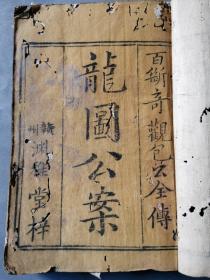 百斷奇觀包公全傳
龍圖公案
贛州
堂梓